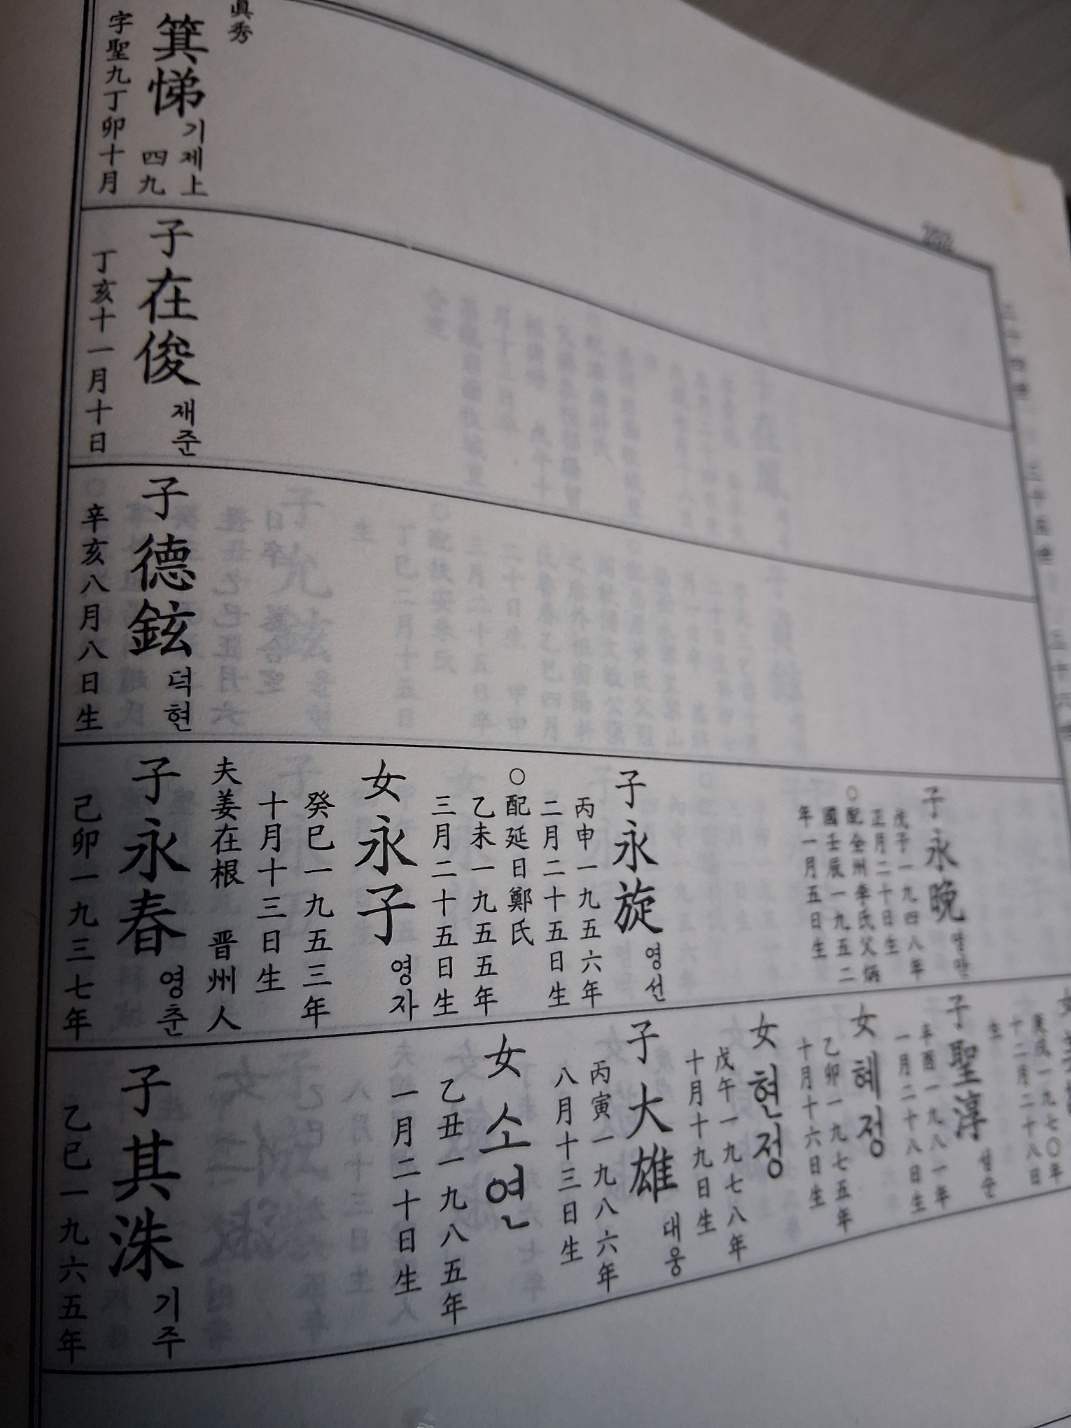 子永晩 영만
戊子一九四八年
正月二十日生
○配全州李氏父炳
國壬辰一九五二
年一月五日生
子永旋 영선
丙申一九五六年
二月二十五日生
○配延日鄭氏
乙未一九五五年
三月二十五日生
女永子 영자
癸巳一九五三年
十月十三日生
夫姜在根 晋州人
子永春 영춘
己卯一九三七年
庚戌一九七〇年
十二月二十八日
生
子聖淳 성순
辛酉一九八一年
一月二十八日生
女혜정
乙卯一九七五年
十月十六日生
女현정
戊午一九七八年
十月十九日生
子大雄 대웅
丙寅一九八六年
八月十三日生
女소연
乙丑一九八五年
一月二十日生
子其洙 기주
乙巳一九六五年
眞秀
箕悌 기제 上四九
字聖九丁卯十月
子在俊 재준
丁亥十一月十日
子德鉉 덕현
辛亥八月八日生